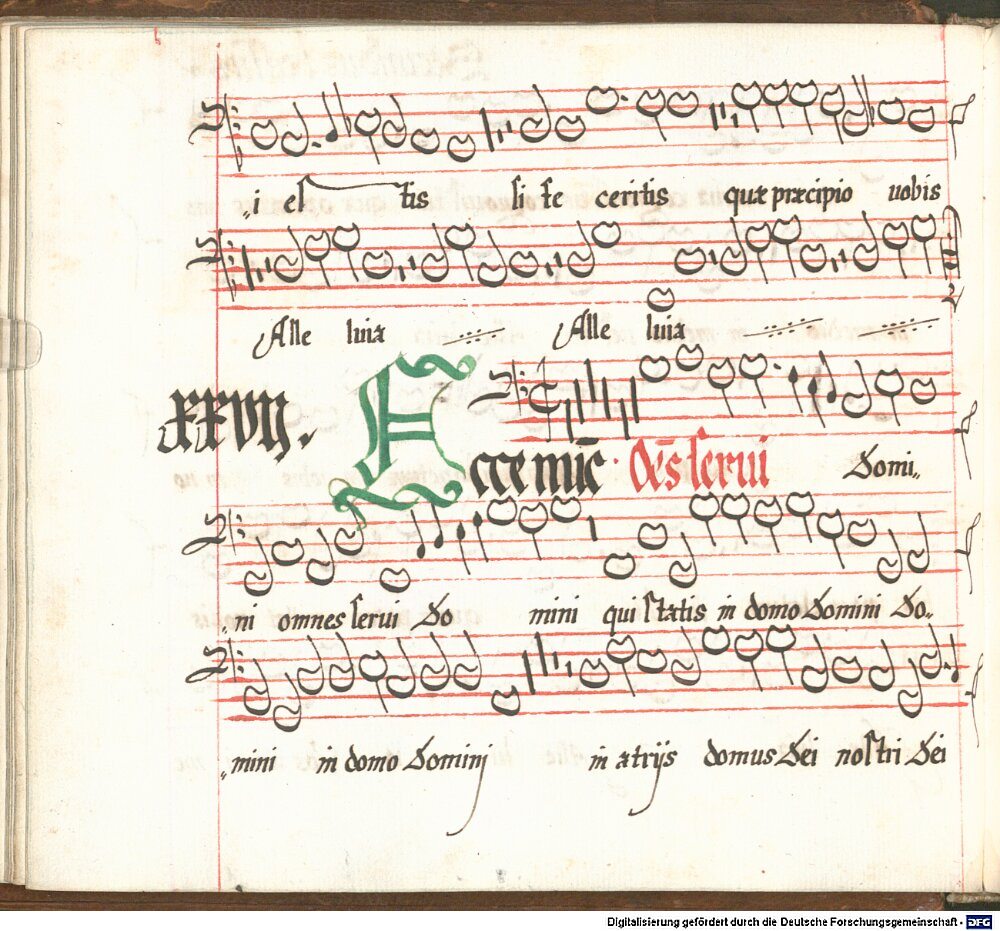 „i estis si feceritis quæ præcipio uobis
Alle luia Alle luia
XXVII.
Ecce nūc · Oēs serui Domi„
„ni omnes serui Do mini qui statis in domo Domini Do„
„mini in domo Domini in atrijs domus Dei nostri Dei
Digitalisierung gefördert durch die Deutsche Forschungsgemeinschaft - DFG